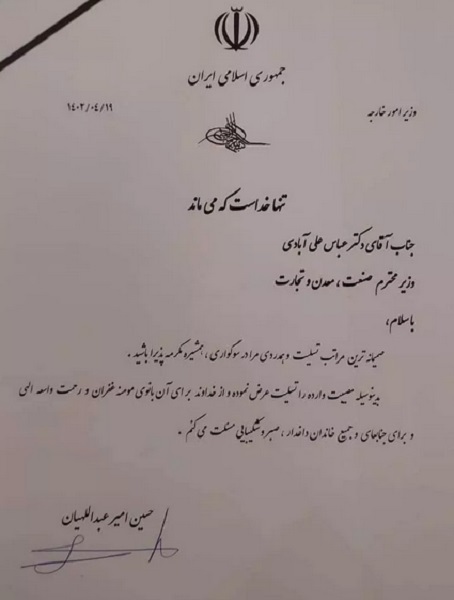 جمهوری اسلامی ایران
وزیر امور خارجه
۱۴۰۲/۰۴/۱۹
تنها خداست که می ماند
جناب آقای دکتر عباس علی آبادی
وزیر محترم صنعت، معدن و تجارت
با سلام،
صمیمانه ترین مراتب تسلیت و همدردی مرا در سوگواری، همشیره مکرمه پذیرا باشید.
بدینوسیله مصیبت وارده را تسلیت عرض نموده و از خداوند برای آن بانوی مومنه غفران و رحمت واسعه الهی
و برای جنابعالی و جمیع خاندان داغدار، صبر و شکیبایی مسئلت می کنم.
حسین امیرعبداللهیان